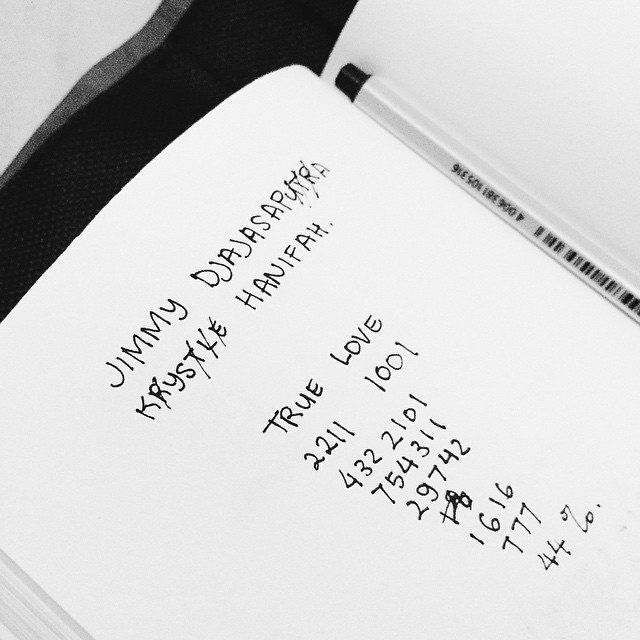 JIMMY DJAJASAPUTRA
KRYSTLE HANIFAH.
TRUE LOVE
2211 1001
432 2101
754311
29742
1616
777
44%.